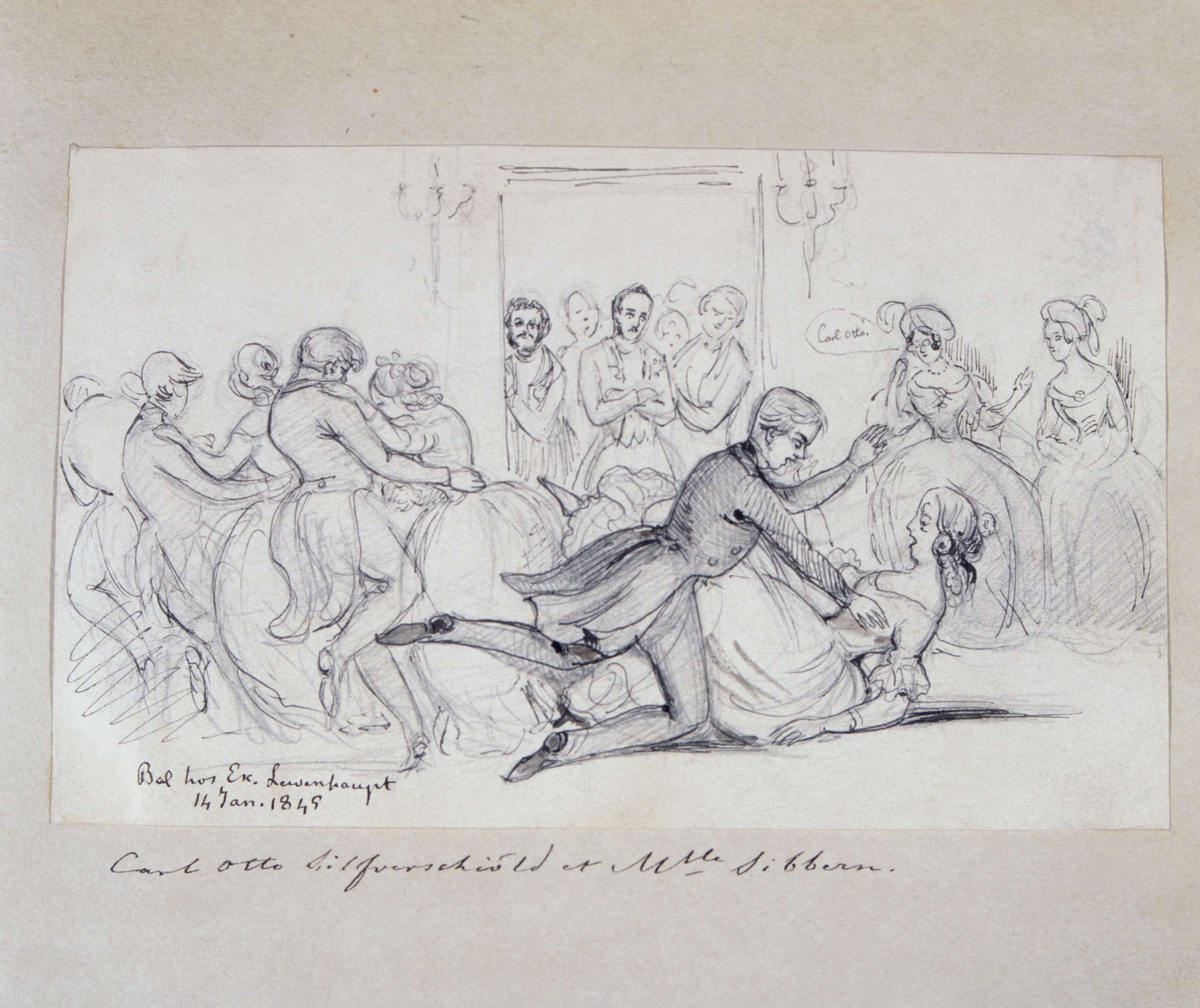 Carl Otto.
Bal hos Ex. Lewenhaupt
14 Jan. 1845
Carl Otto Silfverschiöld et Mlle Sibbern.